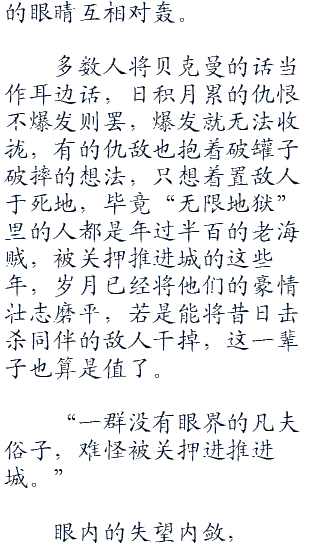 的眼睛互相对轰。
多数人将贝克曼的话当
作耳边话，日积月累的仇恨
不爆发则罢，爆发就无法收
拢，有的仇敌也抱着破罐子
破摔的想法，只想着置敌人
于死地，毕竟“无限地狱”
里的人都是年过半百的老海
贼，被关押推进城的这些
年，岁月已经将他们的豪情
壮志磨平，若是能将昔日击
杀同伴的敌人干掉，这一辈
子也算是值了。
“一群没有眼界的凡夫
俗子，难怪被关押进推进
城。”
眼内的失望内敛，